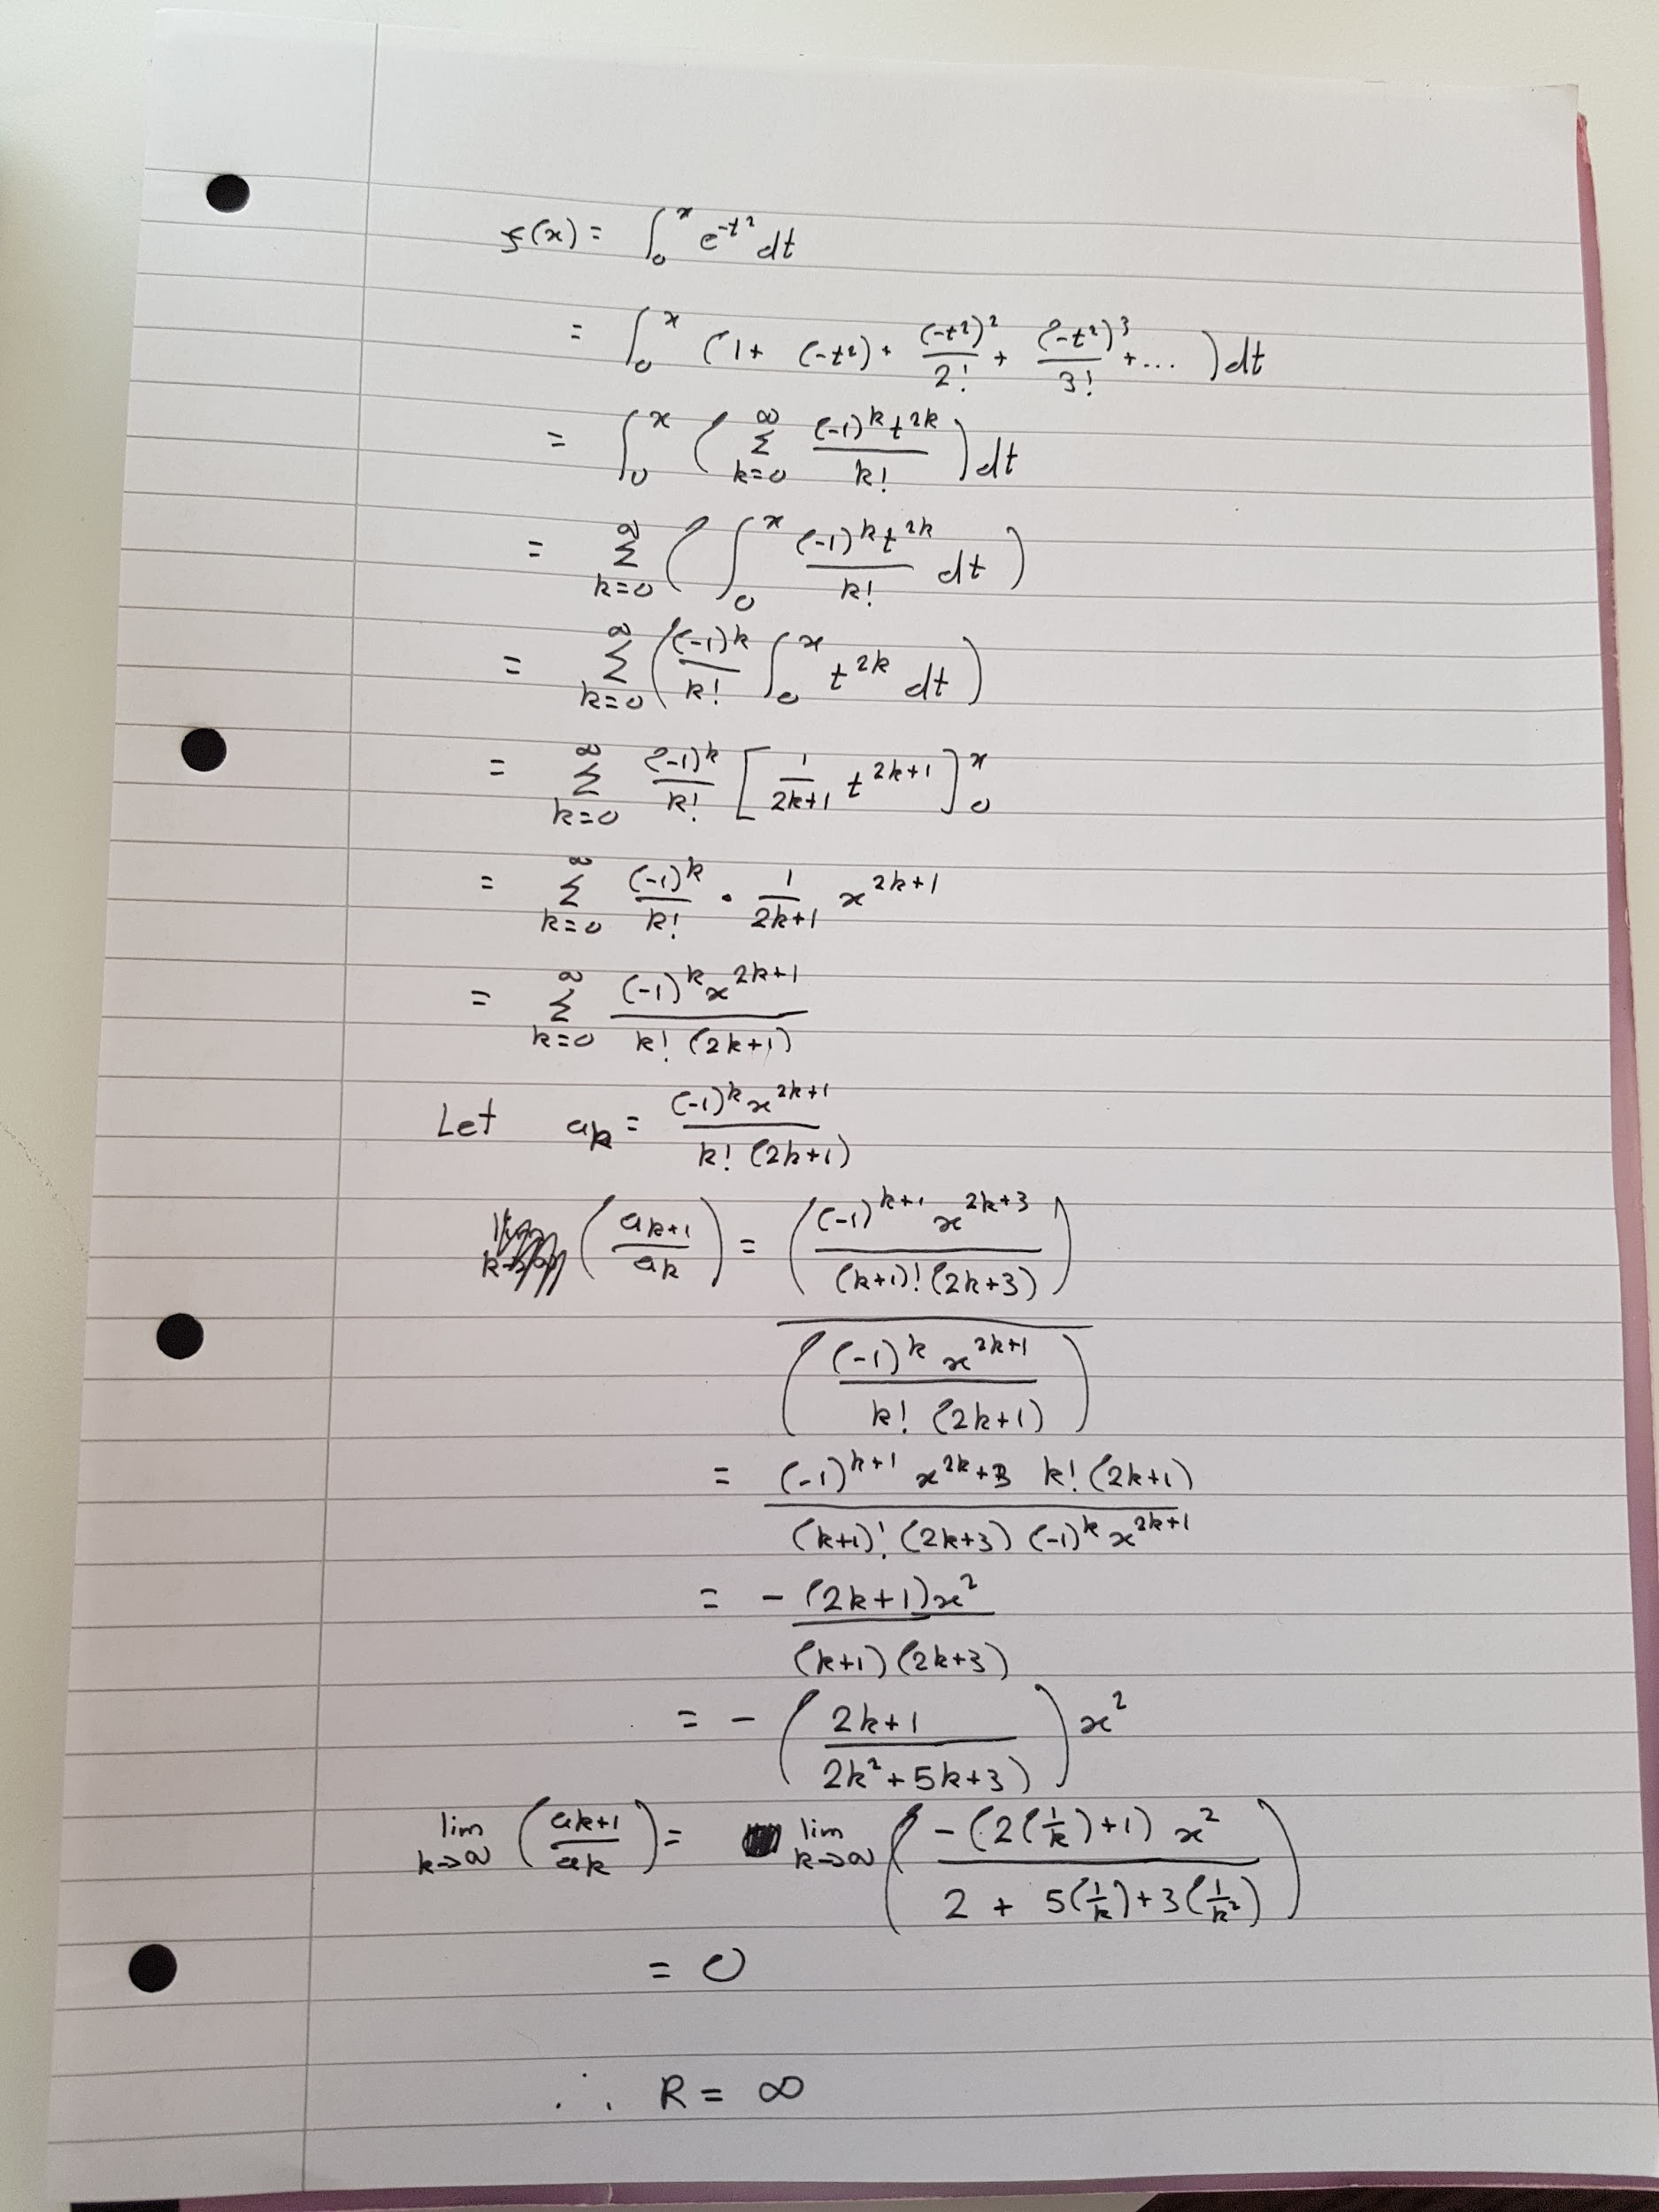 f(x) = ∫₀ˣ e^{-t²} dt
= ∫₀ˣ (1 + (-t²) + (-t²)²/2! + (-t²)³/3! + ...) dt
= ∫₀ˣ ( Σ_{k=0}^{∞} (-1)^k t^{2k} / k! ) dt
= Σ_{k=0}^{∞} ( ∫₀ˣ (-1)^k t^{2k} / k! dt )
= Σ_{k=0}^{∞} ( (-1)^k / k! ∫₀ˣ t^{2k} dt )
= Σ_{k=0}^{∞} (-1)^k / k! [ 1/(2k+1) t^{2k+1} ]₀ˣ
= Σ_{k=0}^{∞} (-1)^k / k! · 1/(2k+1) x^{2k+1}
= Σ_{k=0}^{∞} (-1)^k x^{2k+1} / k! (2k+1)
Let a_k = (-1)^k x^{2k+1} / k! (2k+1)
(a_{k+1} / a_k) = ( (-1)^{k+1} x^{2k+3} / (k+1)! (2k+3) ) / ( (-1)^k x^{2k+1} / k! (2k+1) )
= (-1)^{k+1} x^{2k+3} k! (2k+1) / (k+1)! (2k+3) (-1)^k x^{2k+1}
= - (2k+1)x² / (k+1)(2k+3)
= - ( 2k+1 / 2k²+5k+3 ) x²
lim_{k→∞} (a_{k+1} / a_k) = lim_{k→∞} ( -(2(1/k)+1) x² / 2 + 5(1/k) + 3(1/k²) )
= 0
∴ R = ∞